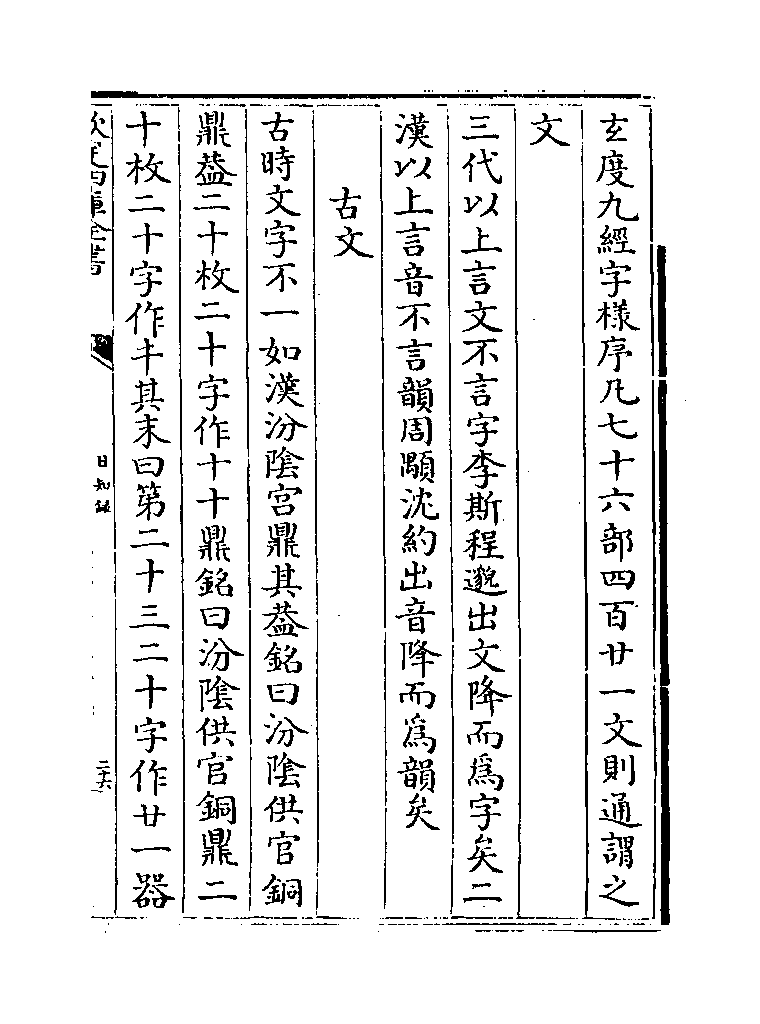 玄度九經字様序凡七十六部四百廿一文則通謂之
文
三代以上言文不言字李斯程邈出文降而爲字矣二
漢以上言音不言韻周顒沈約出音降而爲韻矣
古文
古時文字不一如漢汾陰宫鼎其葢銘曰汾陰供官銅
鼎葢二十枚二十字作十十鼎銘曰汾陰供官銅鼎二
十枚二十字作𠦄其末曰第二十三二十字作廿一器
欽定四庫全書
日知錄
二十六